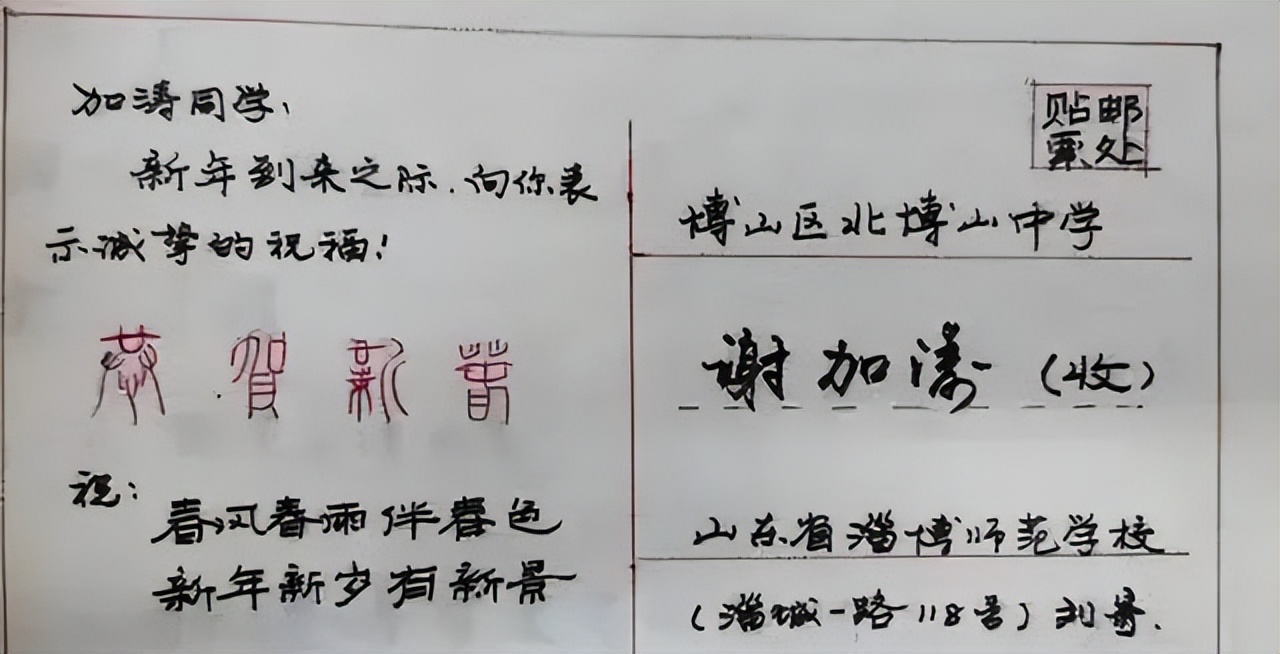 加涛同学,
新年到来之际.向你表
示诚挚的祝福!
恭贺新春
祝:
春风春雨伴春色
新年新岁有新景
贴邮
票处
博山区北博山中学
谢加涛(收)
山东省淄博师范学校
(淄城一路118号)刘